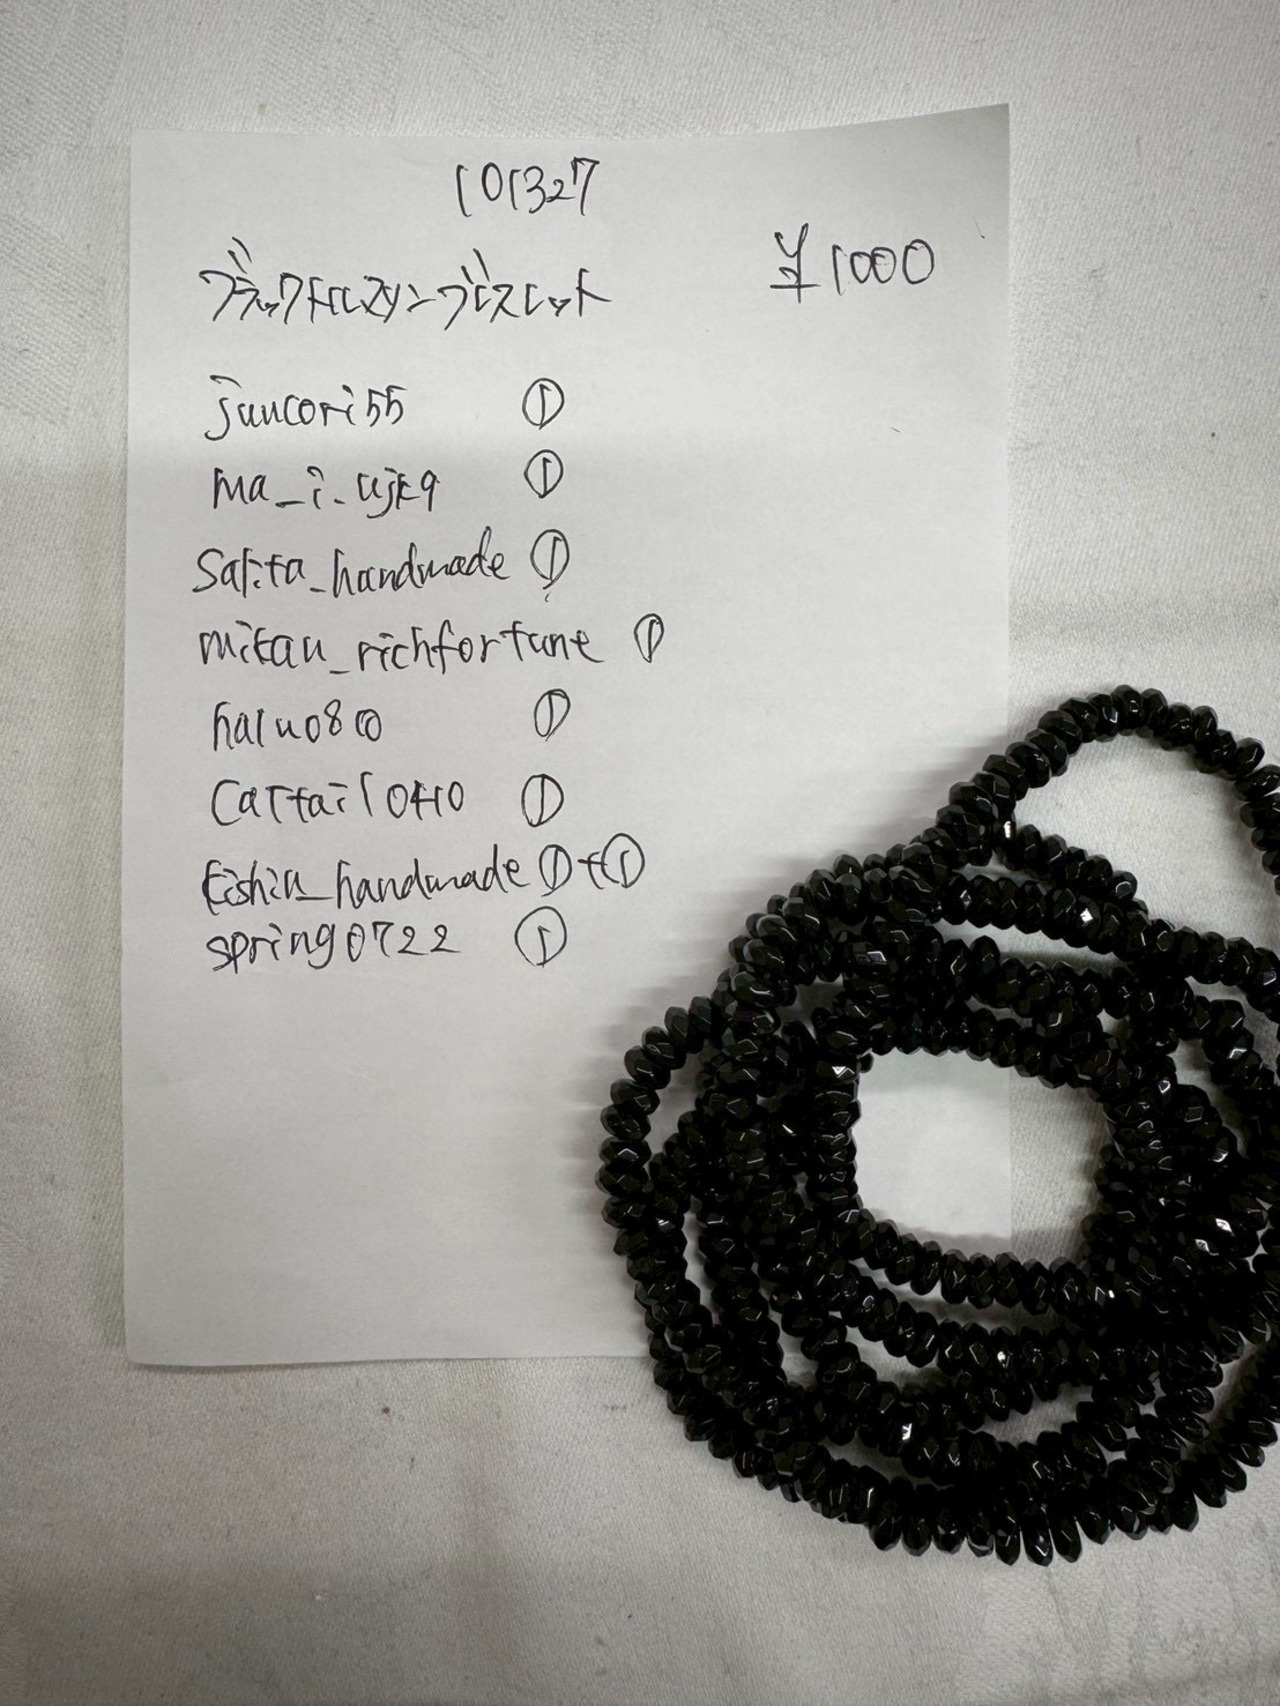 101327
¥1000
ブラックトルマリンブレスレット
juncori55 ①
ma_i_ujk9 ①
Sakita_handmade ①
mikan_richfortune ①
haluo80 ①
Cattail0410 ①
kishiu_handmade ①+①
spring0722 ①